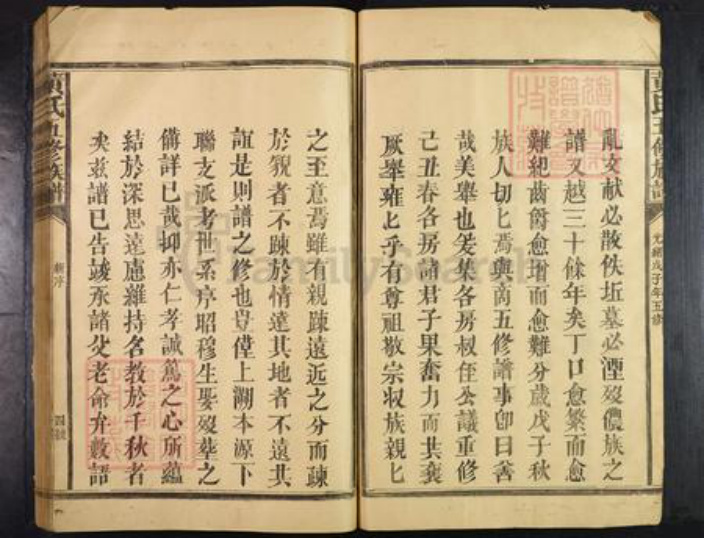 黃氏五修族譜
光緒戊子年五修
亂文献必散佚坵墓必湮歿儂族之
譜又越三十餘年矣丁口愈繁而愈
難紀齒爵愈增而愈難分歲戊子秋
族人切匕焉與商五修譜事卽曰善
哉美舉也爰集各房叔侄公議重修
己丑春各房諸君子果奮力而共襄
厥舉雍匕乎有尊祖敬宗収族親匕
之至意焉雖有親踈遠近之分而踈
於貌者不踈於情遠其地者不遠其
誼是則譜之修也豈僅上溯本源下
聯支派考世系序昭穆生娶歿塟之
備詳已哉抑亦仁孝誠篤之心所蘊
結於深思遠慮維持名教於千秋者
矣茲譜已告竣承諸父老命弁數語
黃氏五修族譜
新序
四號
FamilySearch